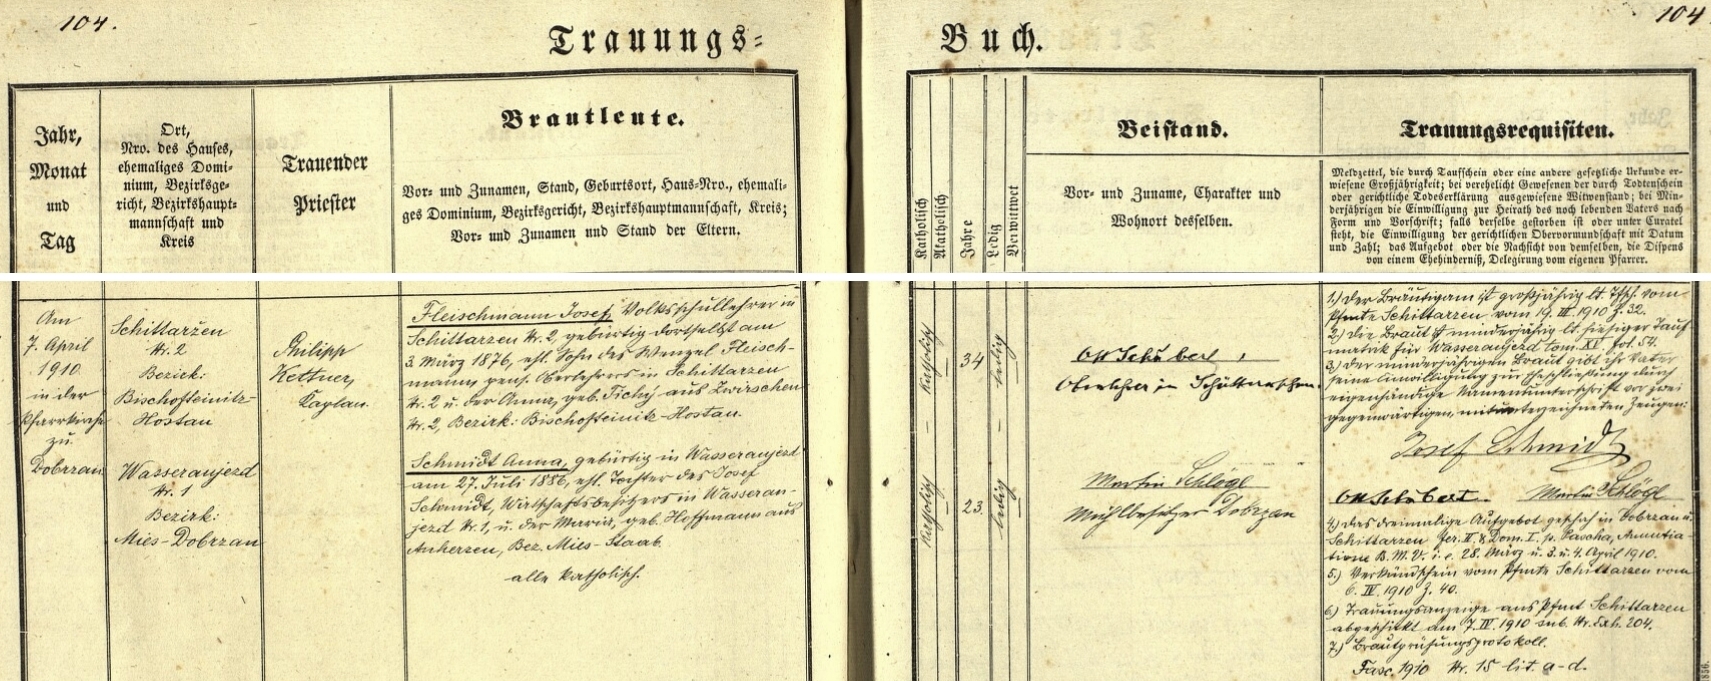 104.
104
Trauungs-
Buch.
Jahr,
Monat
und
Tag
Ort,
Nro. des Hauses,
ehemaliges Domi-
nium, Bezirksge-
richt, Bezirkshaupt-
mannschaft und
Kreis
Trauender
Priester
Brautleute.
Vor- und Zunamen, Stand, Geburtsort, Haus-Nro., ehemali-
ges Dominium, Bezirksgericht, Bezirkshauptmannschaft, Kreis;
Vor- und Zunamen und Stand der Eltern.
Katholisch
Akatholisch
Jahre
Ledig
Verwittwet
Beistand.
Vor- und Zuname, Charakter und
Wohnort desselben.
Trauungsrequisiten.
Meldzettel, die durch Taufschein oder eine andere gesetzliche Urkunde er-
wiesene Großjährigkeit; bei verehelicht Gewesenen der durch Todtenschein
oder gerichtliche Todeserklärung ausgewiesene Witwenstand; bei Min-
derjährigen die Einwilligung zur Heirath des noch lebenden Vaters nach
Form und Vorschrift; falls derselbe gestorben ist oder unter Curatel
steht, die Einwilligung der gerichtlichen Obervormundschaft mit Datum
und Zahl; das Aufgebot oder die Nachsicht von demselben, die Dispens
von einem Ehehinderniß, Delegirung vom eigenen Pfarrer.
Am
7. April
1910
in der
Pfarrkirche
zu
Dobrzan
Schittaržen
Nr. 2
Bezirk:
Bischofteinitz-
Hostau
Wasseraujezd
Nr. 1
Bezirk:
Mies-Dobrzan
Philipp
Kettner,
Kaplan.
Fleischmann Josef, Volksschullehrer in
Schittarzen Nr. 2, gebürtig dortselbst am
3. März 1876, ehl. Sohn des Wenzel Fleisch-
mann, pens. Oberlehrers in Schittarzen
Nr. 2 u. der Anna, geb. Tichý aus Zwirschen
Nr. 2, Bezirk: Bischofteinitz-Hostau.
Schmidt Anna, gebürtig in Wasseraujezd
am 27. Juli 1886, ehl. Tochter des Josef
Schmidt, Wirtschaftsbesitzers in Wasserau-
jezd Nr. 1, u. der Maria, geb. Hoffmann aus
Anherzen, Bez. Mies-Staab.
alle katholisch.
katholisch
34
ledig
katholisch
23.
ledig
Ott Schubert,
Oberlehrer in Schüttarschen.
Martin Schlögl
Mühlbesitzer Dobrzan
1.) Der Bräutigam ist großjährig lt. Tfsch. vom
Pfmte Schittarzen vom 19. III. 1910 Z. 32.
2.) Die Braut ist minderjährig lt. hiesiger Tauf
matrik für Wasseraujezd tom. XV. fol. 54.
3.) Der minderjährigen Braut gibt ihr Vater
seine Einwilligung zur Eheschließung durch
eigenhändige Namensunterschrift vor zwei
gegenwärtigen, mitunterzeichneten Zeugen:
Josef Schmidt
Ott Schubert. Martin Schlögl
4.) Das dreimalige Aufgebot geschah in Dobrzan u.
Schittarzen Fer. II. & Dom. I. p. Pascha, Annutia-
tione B. M. V. i. e. 28. März u. 3. u. 4. April 1910.
5.) Verkündschein vom Pfmte Schittarzen vom
6. IV. 1910 Z. 40.
6.) Trauungsanzeige ans Pfmt Schittarzen
abgeschickt am 7. IV. 1910 sub. Nr. Exh. 204.
7.) Brautprüfungsprotokoll.
Fasc. 1910 Nr. 15 lit. a-d.